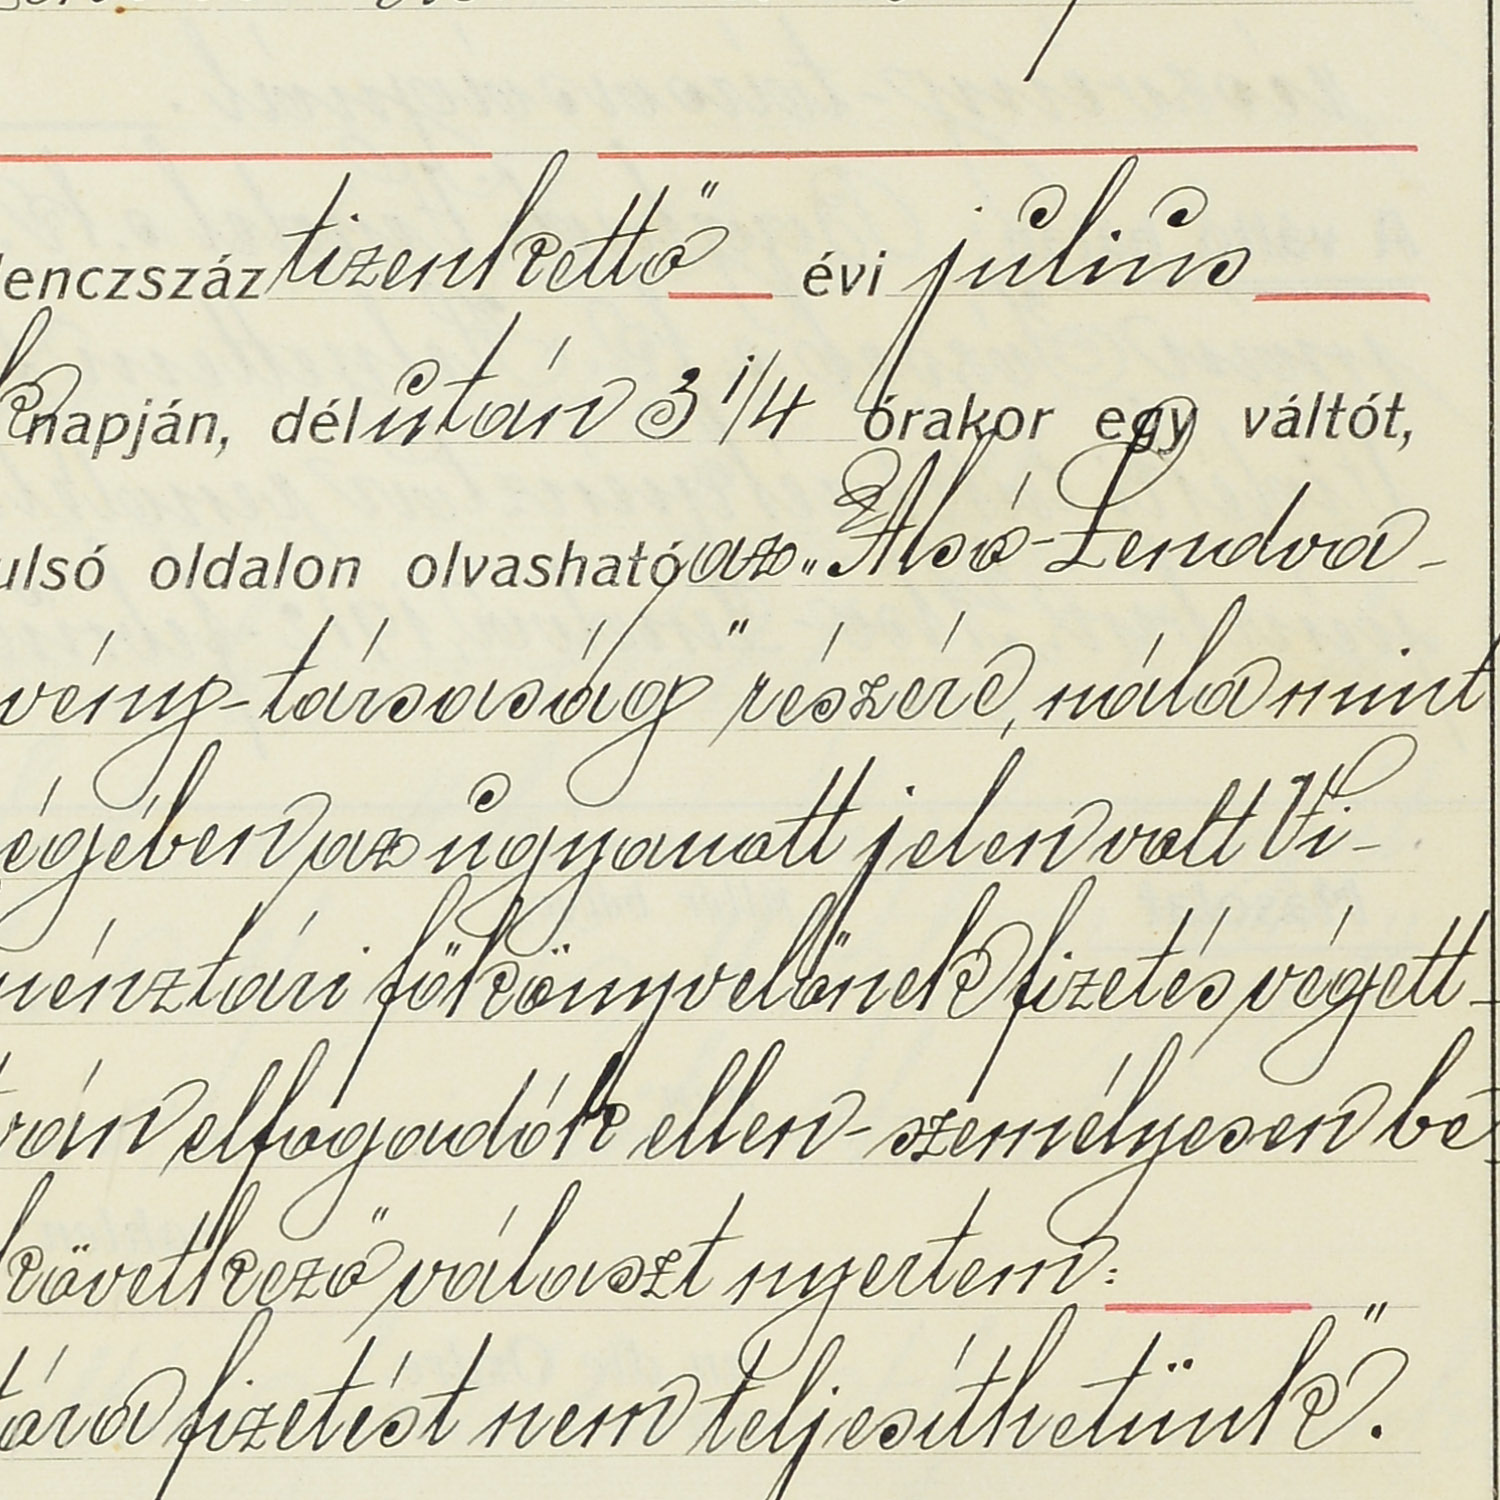 lenczszáz tizenkettő évi július
napján, délután 3 1/4 órakor egy váltót,
ulsó oldalon olvasható az „Alsó-Lendva-
vény-társaság" részére, nála mint
égében az ugyanott jelen volt Vi-
ménztári főkönyvelőnek fizetés végett-
rán elfogadók ellen- személyesen be
következő választ nyertem:
tára fizetést nem teljesíthetünk".